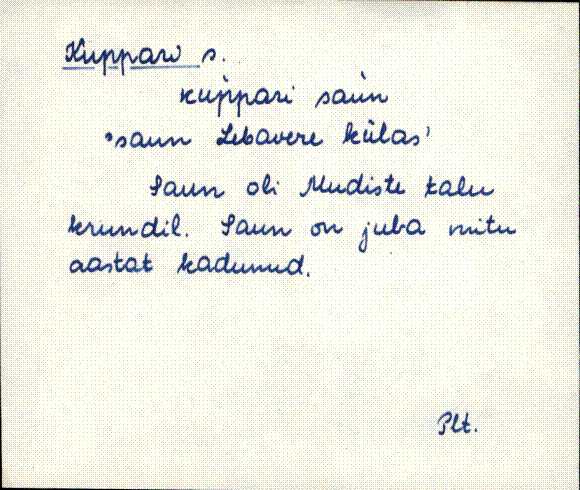 Kuppari s.
kuppari saun
'saun Lebavere külas'
Saun oli Mudiste talu
krundil. Saun on juba mitu
aastat kadunud.
Plt.